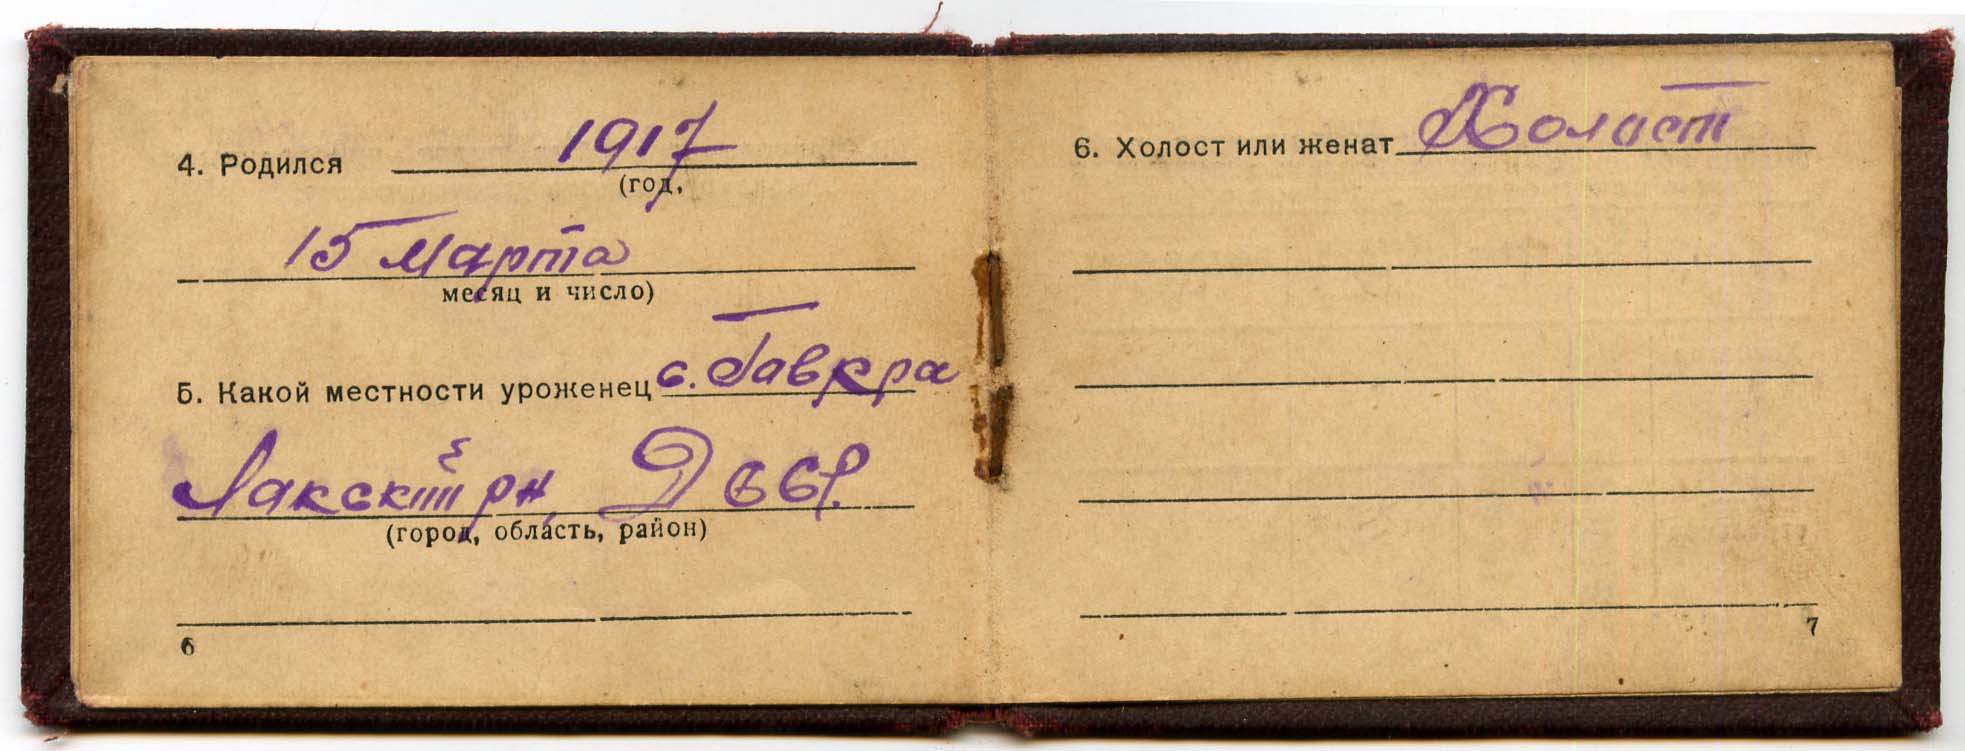 4. Родился 1917
(год,
15 марта
месяц и число)
5. Какой местности уроженец с. Гавкра
Лакский рн, ДССР.
(город, область, район)
6
6. Холост или женат Холост
7